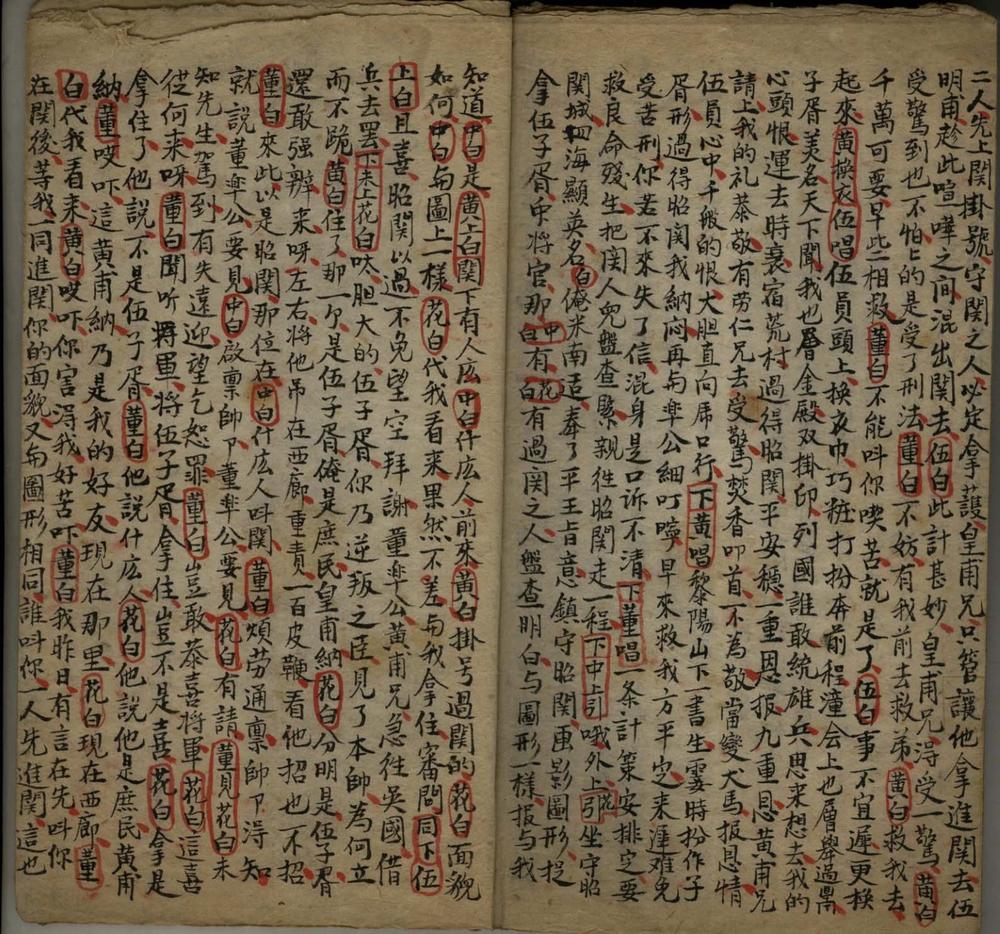 二人先上関掛號守関之人必定拿護皇甫兄只管讓他拿進関去伍
明甫趁此喧嘩之间混出関去伍白此計甚妙皇甫兄淂受一驚黄白
受驚到也不怕上的是受了刑法董白不妨有我前去救弟黄白救我去
千萬可要早些相救董白不能呌你喫苦就是了伍白事不宜遲更換
起來黄换衣伍唱伍員頭上换衣巾巧粧打扮奔前程潼会上也層舉過鼎
子胥美名天下聞我也層金殿双掛印列國誰敢統雄兵思來想去我的
心頭恨運去時衰宿荒村過得昭関平安穩一重恩报九重恩黄甫兄
請上我的礼恭敬有劳仁兄去受驚焚香叩首不為敬當變犬馬报恩情
伍員心中千般的恨大胆直向席口行下黄唱黎陽山下一書生霎時扮作子
胥形過得昭関我納闷再与皋公細叮嚀早來救我方平定来遲难免
受苦刑你若不來失了信混身是口诉不清下董唱一条計策安排定要
救良命殘生把関人兜盤查緊親往昭関走一程下中上引哦外上引坐守昭
関城四海顯英名白俺米南适奉了平王旨意鎮守昭関画影圖形捉
拿伍子胥中将官那中白有花白有過関之人盤查明白与圖形一樣报与我
知道中白是黄上白関下有人広中白什広人前來黄白掛号過関的花白面貌
如何中白与圖上一樣花白代我看来果然不差与我拿住審問同下伍
上白且喜昭関以過不免望空拜謝董皋公黄甫兄急往吳國借
兵去罢下未上花白呔胆大的伍子胥你乃逆叛之臣見了本帥為何立
而不跪黄白住了那一个是伍子胥俺是庶民皇甫納花白分明是伍子胥
還敢强辨來呀左右将他吊在西廊重責一百皮鞭看他招也不招
董白來此以是昭関那位在中白什広人呌関董白煩劳通禀帥下淂知
就說董皋公要見中白啟禀帥下董皋公要見花白有請董見花白未
知先生駕到有失遠迎望乞恕罪董白豈敢恭喜将軍花白這喜
従何来呀董白聞听将軍将伍子胥拿住豈不是喜花白拿是
拿住了他說不是伍子胥董白他說什広人花白他說他是庶民黄甫
納董哎吓這黄甫納乃是我的好友現在那里花白現在西廊董
白代我看来黄白哎吓你害淂我好苦吓董白我昨日有言在先呌你
在関後等我一同進関你的面貌又与圖形相同誰呌你一人先進関這也